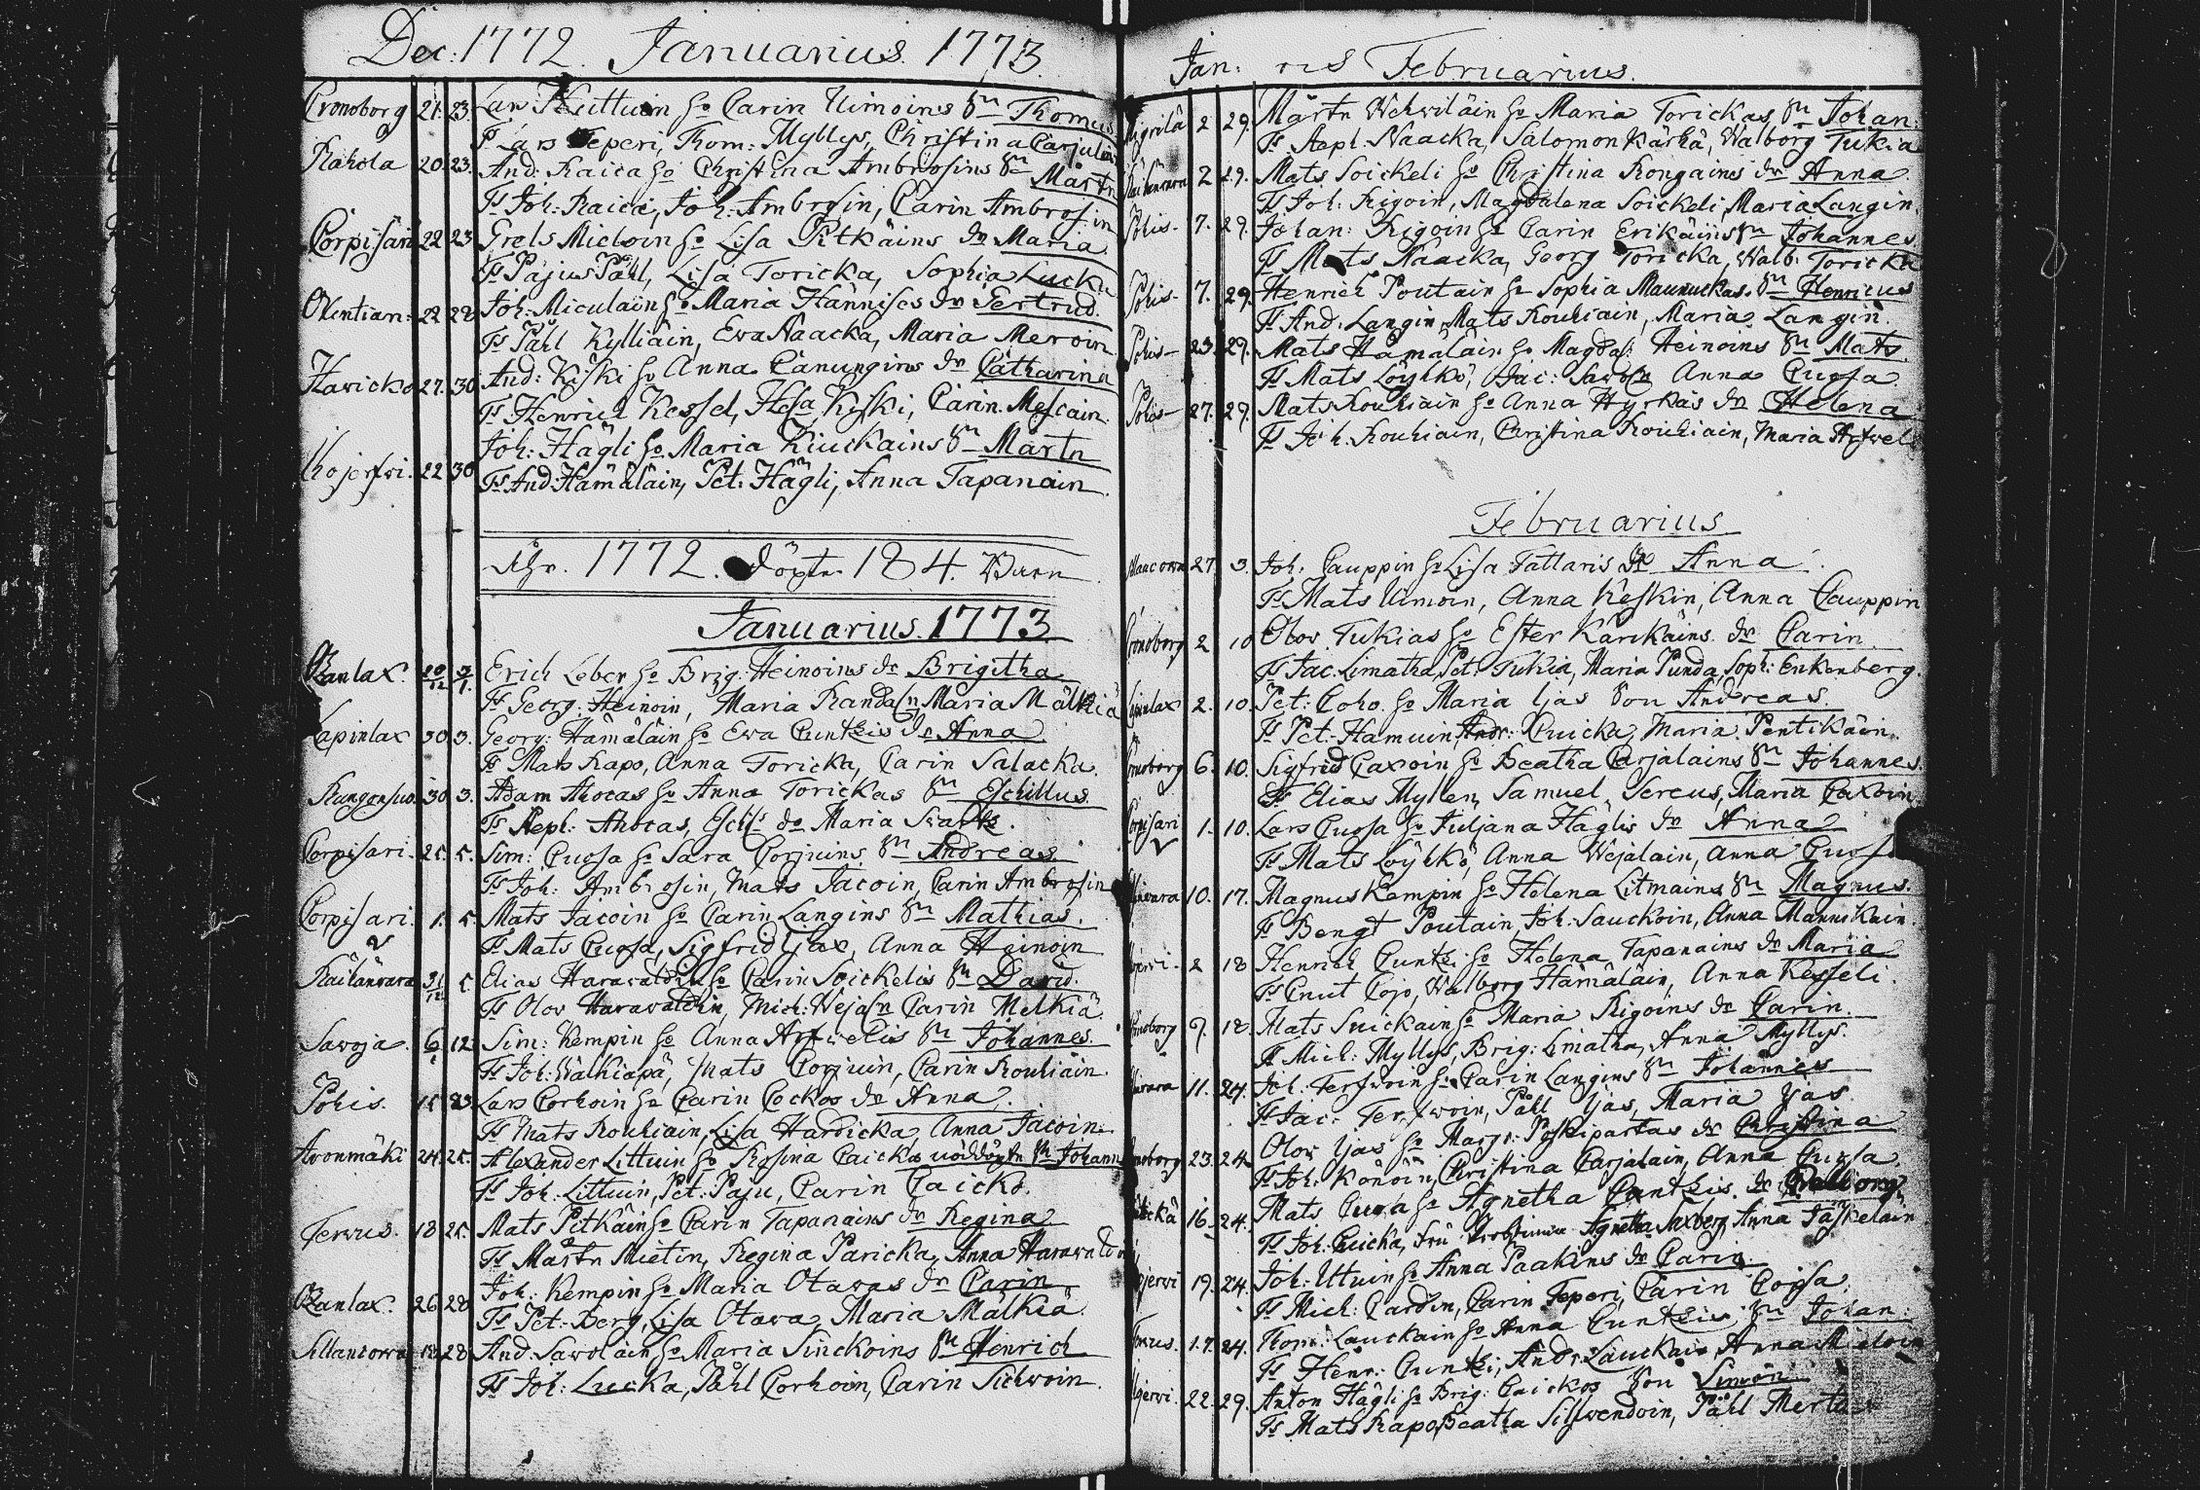 Dec: 1772. Januarius. 1773.
Cronoborg 21. 23. Lars Huttuin h: Carin Uimoins Sn Thomas
Fs Lars Teperi, Thom: Myllys, Christina Carjalain
Rahola 20. 23. And: Raica ho Christina Ambrosins Sn Mårtn
Fs Joh: Raica, Joh: Ambrosin, Carin Ambrosin
Corpisari 22 23 Grels Mieloin ho Lisa Pitkäins dr Maria
Fs Pajus Påhl, Lisa Toricka, Sophia Lucka
Olentian: 22 28 Joh: Miculain ho Maria Hännises dr Gertrud.
Fs Påhl Kylliäin, Ewa Naacka, Maria Meroin
Havicko 27. 30 And: Kiski ho Anna Canungins dr Catharina
Fs Henrich Kessel, Hesa Keski, Carin Mescain.
Kojerfvi. 22 30 Joh: Hägli ho Maria Kiuckains Sn Mårtn
Fs And: Hämäläin, Pet: Hägli, Anna Tapanain.
Åhr. 1772. döpte 184. Barn
Januarius. 1773
Kanlax. 28/12 3/1. Erich Leber ho Brig: Heinoins dr Brigitha
Fs Georg: Heinoin, Maria Randaln Maria Mälkiä
Lapinlax 30 3. Georg: Hämäläin ho Ewa Cuntzis dr Anna
Fs Mats Kapo, Anna Toricka, Carin Salacka.
Kungonsuo. 30 3. Adam Ahocas ho Anna Torickas Sn Eschillus.
Fs Aepl: Ahocas, Esch: do Maria Swartz.
Corpisari. 25. 5. Sim: Cuosa ho Sara Corjuins Sn Andreas.
Fs Joh: Ambrosin, Mats Jacoin, Carin Ambrosin
Corpisari. 1. 5 Mats Jacoin ho Carin Langins Sn Mathias.
Fs Mats Cuosa, Sigfrid Ijas, Anna Heinoin
Railanvara 31/12 5. Elias Harawaldin ho Carin Soickelis Sn David.
Fs Olov Harawaldin, Mich: Wejaln Carin Melkiä.
Savoja. 6 12 Sim: Kempin ho Anna Arfwelis Sn Johannes.
Fs Joh: Walkiapä, Mats Corjuin, Carin Rouhiäin.
Pohis. 15 23 Lars Corhoin ho Carin Cockos dr Anna.
Fs Mats Rouhiain, Lisa Hardicka, Anna Jacoin.
Aronmäki 24. 25. Alexander Littuin ho Rosina Caickos nöddöpte Sn Johann
Fs Joh: Littuin, Pet: Paju, Carin Caicko.
Tervus. 18 25. Mats Pitkäin ho Carin Tapanains dr Regina
Fs Mårtn Mietin, Regina Paricka, Anna Harawaldin
Kanlax. 26 28 Joh: Kempin ho Maria Otawas dr Carin
Fs Pet: Berg, Lisa Otawa, Maria Mälkiä.
Sillancorva 18 28 And: Savolain ho Maria Sinckoins Sn Henrich
Fs Joh: Lucka, Påhl Corhoin, Carin Sichwoin.
Jan: Februarius.
2 29. Mårtn Wehwiläin ho Maria Torickas Sn Johan:
Fs Aepl: Naacka, Salomon Kärkä, Walborg Tukia
2 29. Mats Soickeli ho Christina Rongaines dr Anna
Fs Joh: Rigoin, Magdalena Soickeli, Maria Langin.
Pohis- 7. 29. Johan: Rigoin ho Carin Erikäins Sn Johannes.
Fs Mats Naacka, Georg Toricka, Walb: Toricka
Pohis- 7. 29. Henrich Poutain ho Sophia Maunuckas. Sn Henricus
Fs And: Langin, Mats Rouhiain, Maria Langin.
Pohis- 23. 29. Mats Hämäläin ho Magdal: Heinoins Sn Mats
Fs Mats Löyhkö, Jac: Savoln Anna Cuosa.
Pohis- 27. 29. Mats Rouhiain ho Anna Hyrkäs dr Helena
Fs Joh: Rouhiain, Christina Rouhiain, Maria Arfwel
Februarius
27 3. Joh: Cauppin ho Lisa Tattaris dr Anna.
Fs Mats Uimoin, Anna Keskin, Anna Cauppin
Cronoborg 2 10 Olov Tukias ho Ester Kärckäins dr Carin
Fs Jac: Limatha, Pet: Tukia, Maria Punda, Soph: Enkenberg.
Lapinlax 2. 10. Pet: Coho. ho Maria Ijas Son Andreas.
Fs Pet: Hamuin, Andr: Cuicka, Maria Pentikäin.
Cronoborg 6. 10. Sigfrid Caxoin ho Beatha Carjalains Sn Johannes.
Fs Elias Myllen, Samuel Sereus, Maria Caxoin
Corpisari 1. 10. Lars Cuosa ho Juljana Häglis dr Anna
Fs Mats Löyhkö, Anna Wejalain, Anna Cuosa
10. 17. Magnus Kempin ho Helena Litmains Sn Magnus.
Fs Bengt Poutain, Joh: Sauckoin, Anna Mannikain.
2 18 Henrich Cuntzi ho Helena Tapanains dr Maria
Fs Cnut Cojo, Walborg Hämäläin, Anna Kesseli.
9. 18. Mats Suickain ho Maria Rigoins dr Carin.
Fs Mich: Myllys, Brig: Limatha, Anna Myllys.
11. 24. Joh: Terfwoin ho Carin Langins Sn Johannes
Fs Jac: Terfwoin, Påhl Ijas, Maria Ijas.
23. 24 Olov Ijas ho Margr: Pyskipartas dr Christina
Fs Joh: Könöin, Christina Carjalain, Anna Cuosa.
16 24. Mats Cuosa ho Agnetha Cuntzis. dr Walborg
Fs Joh: Cuicka, fru Probstinnan Agnetha Saxberg, Anna Jäskelain
19. 24. Joh: Utuin ho Anna Paakins dr Carin
Fs Mich: Cardin, Carin Teperi, Carin Coisa.
17. 24. Thom: Lauckain ho Anna Cuntzis Sn Johan:
Fs Henr: Cuntzi, Andr: Lauckain, Anna Mieloin
22. 29. Anton Hägli ho Brig: Caickos Son Simon
Fs Mats Kapo, Beatha Silfwendoin, Påhl Mert